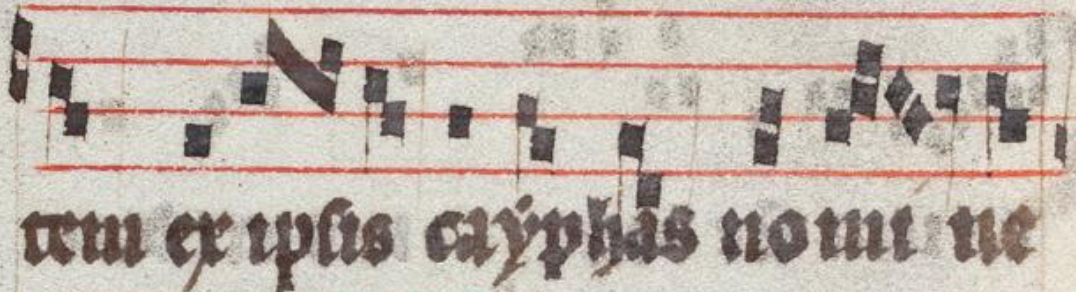 tem ex ipsis cayphas nomi ne